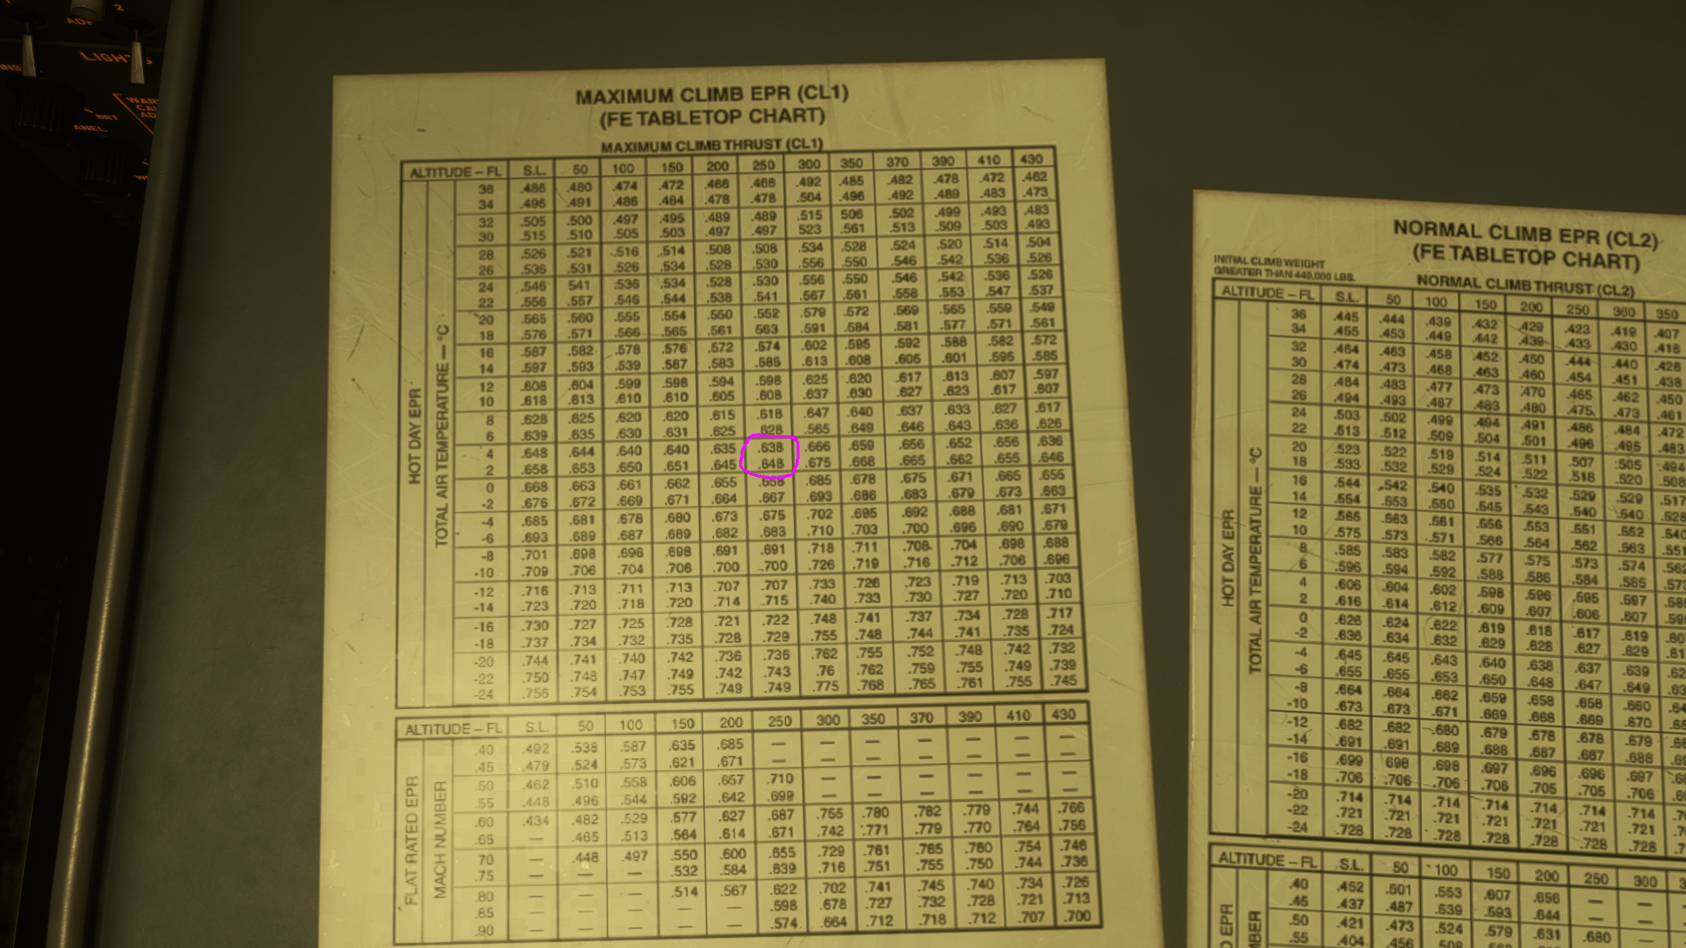 ADF
2
LIGHTS
BRT
ANEL
MAXIMUM CLIMB EPR (CL1)
(FE TABLETOP CHART)
MAXIMUM CLIMB THRUST (CL1)
ALTITUDE – FL S.L. 50 100 150 200 250 300 350 370 390 410 430
HOT DAY EPR
TOTAL AIR TEMPERATURE — °C
36 .486 .480 .474 .472 .466 .466 .492 .485 .482 .478 .472 .462
34 .496 .491 .486 .484 .478 .478 .504 .496 .492 .489 .483 .473
32 .505 .500 .497 .495 .489 .489 .515 .506 .502 .499 .493 .483
30 .515 .510 .505 .503 .497 .497 523 .561 .513 .509 .503 .493
28 .526 .521 .516 .514 .508 .508 .534 .528 .524 .520 .514 .504
26 .536 .531 .526 .534 .528 .530 .556 .550 .546 .542 .536 .526
24 .546 541 .536 .534 .528 .530 .556 .550 .546 .542 .536 .526
22 .556 .557 .546 .544 .538 .541 .567 .561 .558 .553 .547 .537
20 .565 .560 .555 .554 .550 .552 .579 .572 .569 .565 .559 .549
18 .576 .571 .566 .565 .561 563 .591 .584 .581 .577 .571 .561
16 .587 .582 .578 .576 .572 .574 .602 .595 .592 .588 .582 .572
14 .597 .593 .539 .587 .583 .585 .613 .608 .605 .601 .595 .585
12 .608 .604 .599 .598 .594 .596 .625 .620 .617 .613 .607 .597
10 .618 .613 .610 .610 .605 .608 .637 .630 .627 .623 .617 .607
8 .628 .625 .620 .620 .615 .618 .647 .640 .637 .633 .627 .617
6 .639 .635 .630 .631 .625 .628 .565 .649 .646 .643 .636 .626
4 .648 .644 .640 .640 .635 .638 .666 .659 .656 .652 .656 .636
2 .658 .653 .650 .651 .645 .648 .675 .668 .665 .662 .655 .646
0 .668 .663 .661 .662 .655 .658 .685 .678 .675 .671 .665 .655
-2 .676 .672 .669 .671 .664 .667 .693 .686 .683 .679 .673 .663
-4 .685 .681 .678 .680 .673 .675 .702 .695 .692 .688 .681 .671
-6 .693 .689 .687 .689 .682 .683 .710 .703 .700 .696 .690 .679
-8 .701 .698 .696 .698 .691 .691 .718 .711 .708 .704 .698 .688
-10 .709 .706 .704 .706 .700 .700 .726 .719 .716 .712 .706 .696
-12 .716 .713 .711 .713 .707 .707 .733 .726 .723 .719 .713 .703
-14 .723 .720 .718 .720 .714 .715 .740 .733 .730 .727 .720 .710
-16 .730 .727 .725 .728 .721 .722 .748 .741 .737 .734 .728 .717
-18 .737 .734 .732 .735 .728 .729 .755 .748 .744 .741 .735 .724
-20 .744 .741 .740 .742 .736 .736 .762 .755 .752 .748 .742 .732
-22 .750 .748 .747 .749 .742 .743 .76 .762 .759 .755 .749 .739
-24 .756 .754 .753 .755 .749 .749 .775 .768 .765 .761 .755 .745
ALTITUDE – FL S.L. 50 100 150 200 250 300 350 370 390 410 430
FLAT RATED EPR
MACH NUMBER
.40 .492 .538 .587 .635 .685 — — — — — — —
.45 .479 .524 .573 .621 .671 — — — — — — —
.50 .462 .510 .558 .606 .657 .710 — — — — — —
.55 .448 .496 .544 .592 .642 .699 — — — — — —
.60 .434 .482 .529 .577 .627 .687 .755 .780 .782 .779 .744 .766
.65 — .465 .513 .564 .614 .671 .742 .771 .779 .770 .764 .756
.70 — .448 .497 .550 .600 .655 .729 .761 .765 .760 .754 .746
.75 — — — .532 .584 .639 .716 .751 .755 .750 .744 .736
.80 — — — .514 .567 .622 .702 .741 .745 .740 .734 .726
.85 — — — — — .598 .678 .727 .732 .728 .721 .713
.90 — — — — — .574 .664 .712 .718 .712 .707 .700
NORMAL CLIMB EPR (CL2)
(FE TABLETOP CHART)
INITIAL CLIMB WEIGHT
GREATER THAN 440,000 LBS.
NORMAL CLIMB THRUST (CL2)
ALTITUDE – FL S.L. 50 100 150 200 250 300 350
HOT DAY EPR
TOTAL AIR TEMPERATURE — °C
36 .445 .444 .439 .432 .429 .423 .419 .407
34 .455 .453 .449 .442 .439 .433 .430 .418
32 .464 .463 .458 .452 .450 .444 .440 .428
30 .474 .473 .468 .463 .460 .454 .451 .438
28 .484 .483 .477 .473 .470 .465 .462 .450
26 .494 .493 .487 .483 .480 .475 .473 .461
24 .503 .502 .499 .494 .491 .486 .484 .472
22 .513 .512 .509 .504 .501 .496 .495 .483
20 .523 .522 .519 .514 .511 .507 .505 .494
18 .533 .532 .529 .524 .522 .518 .520 .508
16 .544 .542 .540 .535 .532 .529 .529 .517
14 .554 .553 .550 .545 .543 .540 .540 .528
12 .565 .563 .561 .556 .553 .551 .552 .540
10 .575 .573 .571 .566 .564 .562 .563 .551
8 .585 .583 .582 .577 .575 .573 .574
6 .596 .594 .592 .588 .586 .584 .585 .573
4 .606 .604 .602 .598 .596 .595 .597
2 .616 .614 .612 .609 .607 .606 .607
0 .626 .624 .622 .619 .618 .617 .619
-2 .636 .634 .632 .629 .628 .627 .629
-4 .645 .645 .643 .640 .638 .637 .639
-6 .655 .655 .653 .650 .648 .647 .649
-8 .664 .664 .662 .659 .658 .658 .660
-10 .673 .673 .671 .669 .668 .669 .670
-12 .682 .682 .680 .679 .678 .678 .679
-14 .691 .691 .689 .688 .687 .687 .688
-16 .699 698 .698 .697 .696 .696 .697
-18 .706 .706 .706 .706 .705 .705 .706
-20 .714 .714 .714 .714 .714 .714 .714
-22 .721 .721 .721 .721 .721 .721 .721
-24 .728 .728 .728 .728 .728 .728 .728
ALTITUDE – FL S.L. 50 100 150 200 250 300
.40 .452 .501 .553 .607 .656 — —
.45 .437 .487 .539 .593 .644 — —
.50 .421 .473 .524 .579 .631 .680 —
.55 .404 .456